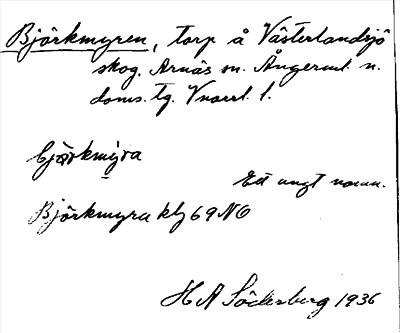 Björkmyren, torp å Västerlandsjö
skog. Arnäs sn. Ångerml. n.
doms. tg. Vnorrl. l.
bjørkmýra
Ett ungt namn.
Björkmyra klg 69 NO
H A Söderberg 1936